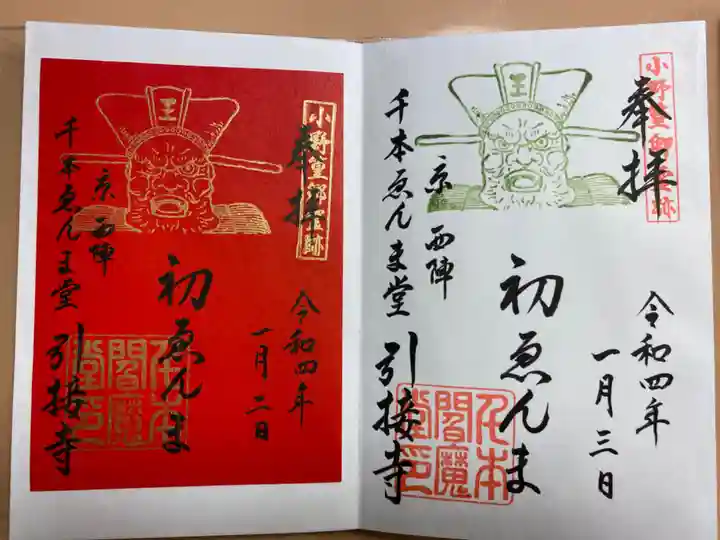 奉拝
小野篁御遺跡
令和四年
一月三日
王
初ゑんま
京西陣
千本ゑんま堂
引接寺
千本
閻魔
堂印
奉拝
小野篁御遺跡
令和四年
一月二日
王
初ゑんま
京西陣
千本ゑんま堂
引接寺
千本
閻魔
堂印